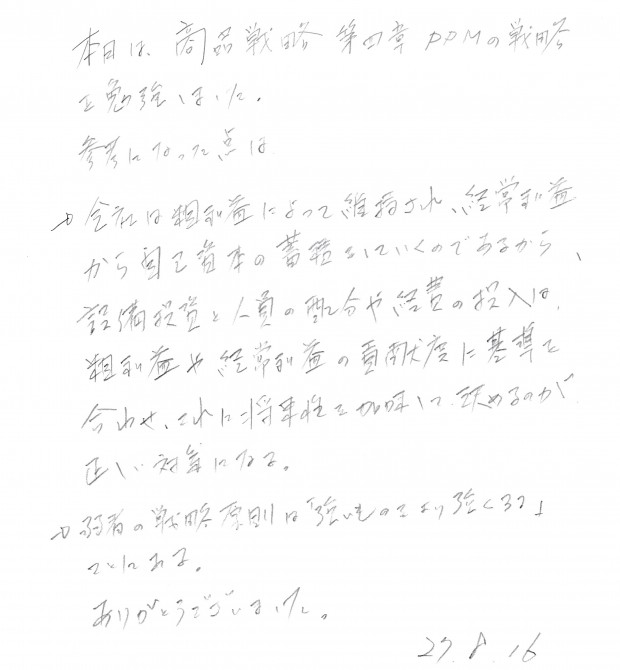 本日は、商品戦略 第四章 PPMの戦略
を勉強しました。
参考になった点は
→会社は粗利益によって維持され、経常利益
から自己資本の蓄積をしていくのであるから、
設備投資と人員の配分や経費の投入は、
粗利益や経常利益の貢献度に基準を
合わせ、これに将来性を加味して決めるのが
正しい対策になる。
→弱者の戦略原則は「強いものをより強くする」
ことにある。
ありがとうございました。
27.8.16